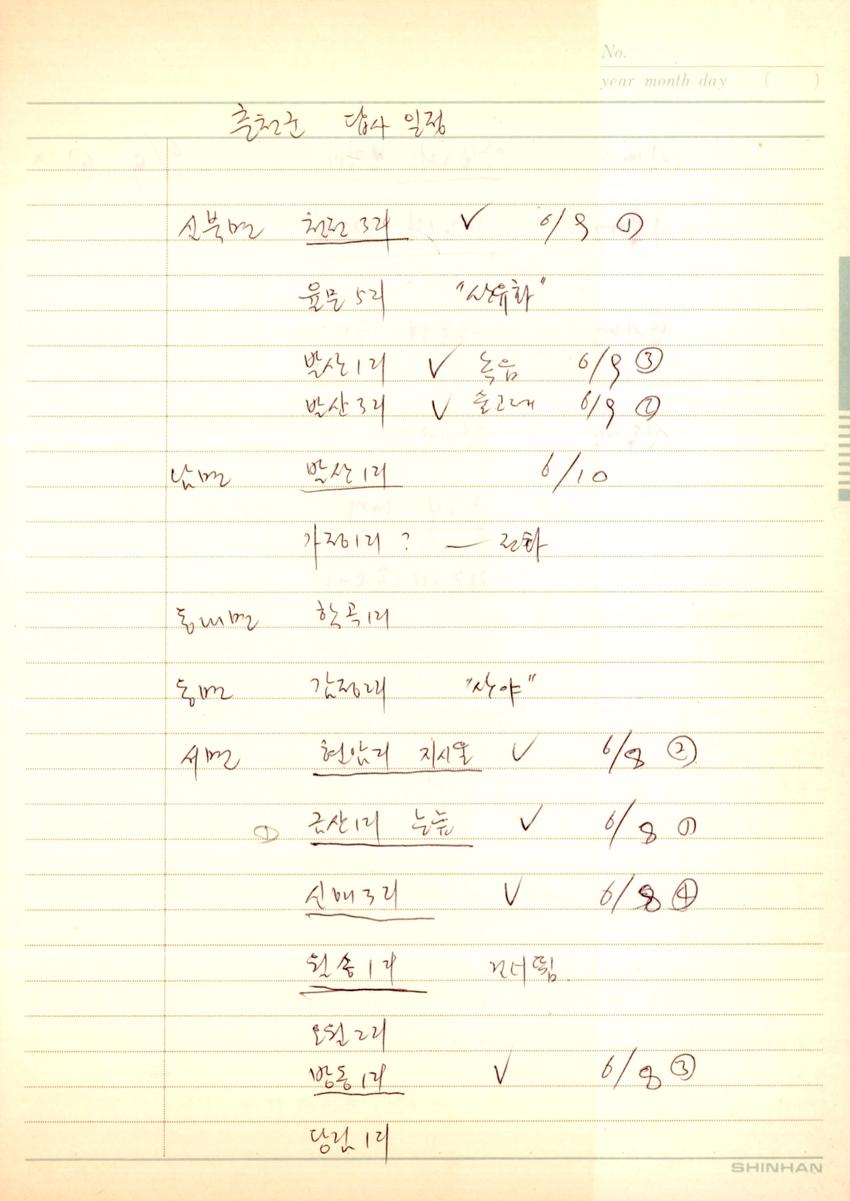 No.
year month day ( )
춘천군 답사 일정
신북면 천전3리 ✓ 6/9 ①
율문5리 "산유화"
발산1리 ✓ 녹음 6/9 ③
발산3리 ✓ 6/9 ②
남면 발산1리 6/10
가정1리 ? — 전화
동내면 학곡1리
동면 감정2리 "산야"
서면 현암리 지시울 ✓ 6/8 ②
① 금산1리 눈늪 ✓ 6/8 ①
신매3리 ✓ 6/8 ④
월송1리 건너뜀.
오월2리
방동1리 ✓ 6/8 ③
당림1리
SHINHAN